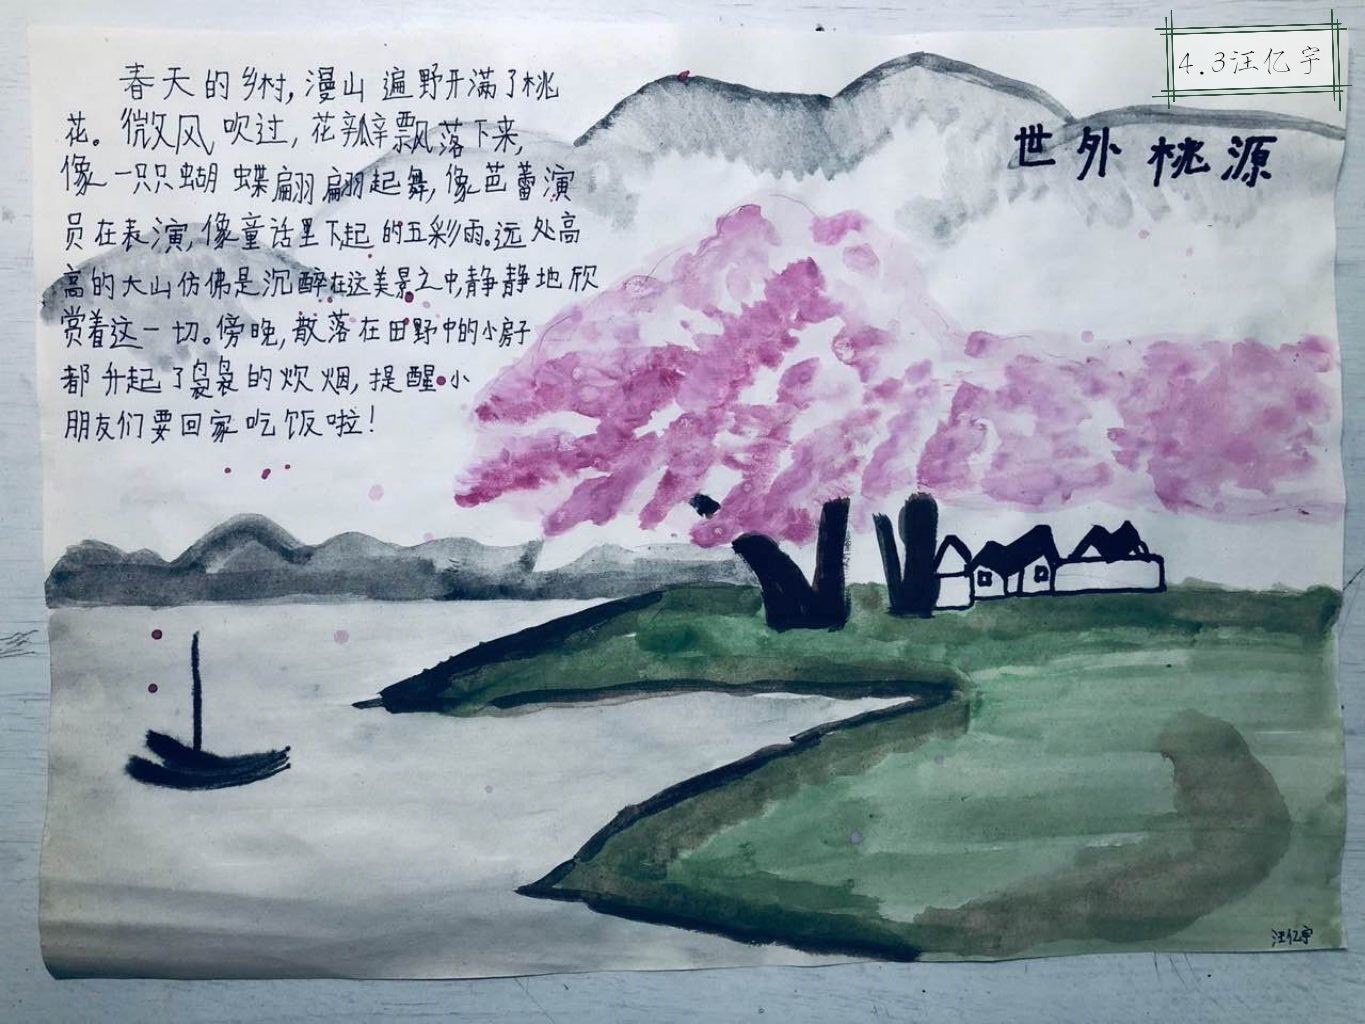 4.3汪亿宇
世外桃源
春天的乡村,漫山遍野开满了桃
花。微风吹过,花瓣飘落下来,
像一只只蝴蝶翩翩起舞,像芭蕾演
员在表演,像童话里下起的五彩雨。远处高
高的大山仿佛是沉醉在这美景之中,静静地欣
赏着这一切。傍晚,散落在田野中的小房子
都升起了袅袅的炊烟,提醒小
朋友们要回家吃饭啦!
汪亿宇